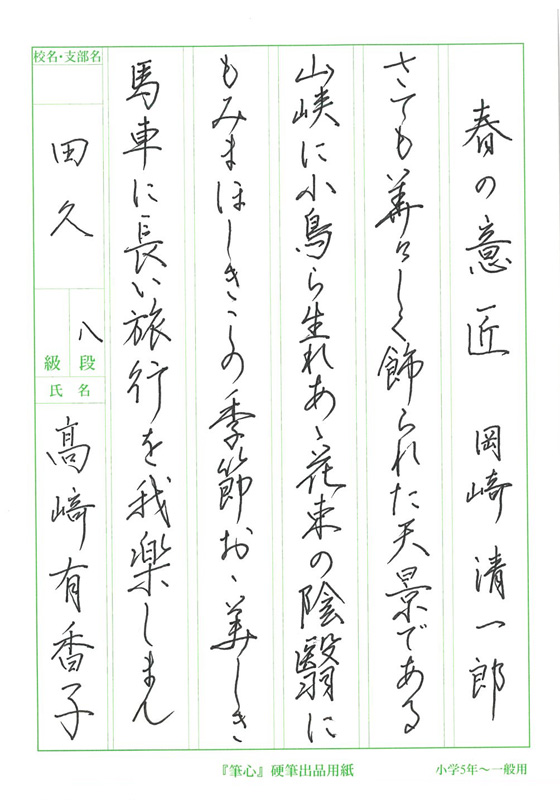 春の意匠 岡崎清一郎
さても美々しく飾られた天景である
山峡に小鳥ら生れあゝ花束の陰翳に
もみまほしきこの季節おゝ美しき
馬車に長い旅行を我楽しまん
校名・支部名
田久
八
段
級
氏名
高﨑有香子
『筆心』硬筆出品用紙
小学5年〜一般用